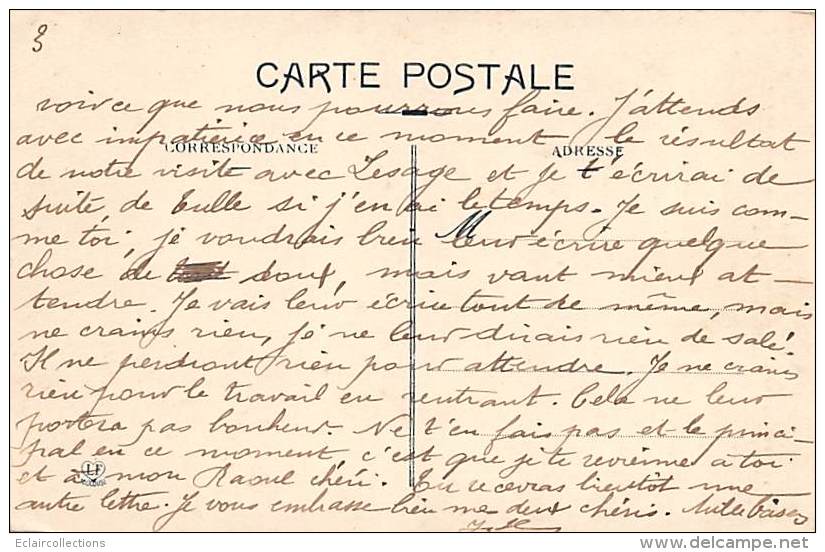 3
CARTE POSTALE
voir ce que nous pourrons faire. J'attends
avec impatience en ce moment le résultat
CORRESPONDANCE
ADRESSE
de notre visite avec Lesage et je t'écrirai de
suite de Tulle si j'en ai le temps. Je suis com-
me toi, je voudrais bien leur écrire quelque
chose de doux, mais vaut mieux at-
tendre. Je vais leur écrire tout de même, mais
ne crains rien, je ne leur dirais rien de salé.
Il ne perdront rien pour attendre. Je ne crains
rien pour le travail en rentrant. Cela ne leur
portera pas bonheur. Ne t'en fais pas et le princi-
pal en ce moment c'est que je te revienne à toi
et à mon Raoul chéri. Tu recevras bientôt une
LF
autre lettre. Je vous embrasse bien me deux chéris. Mille baisers
Eclaircollections
www.delcampe.net